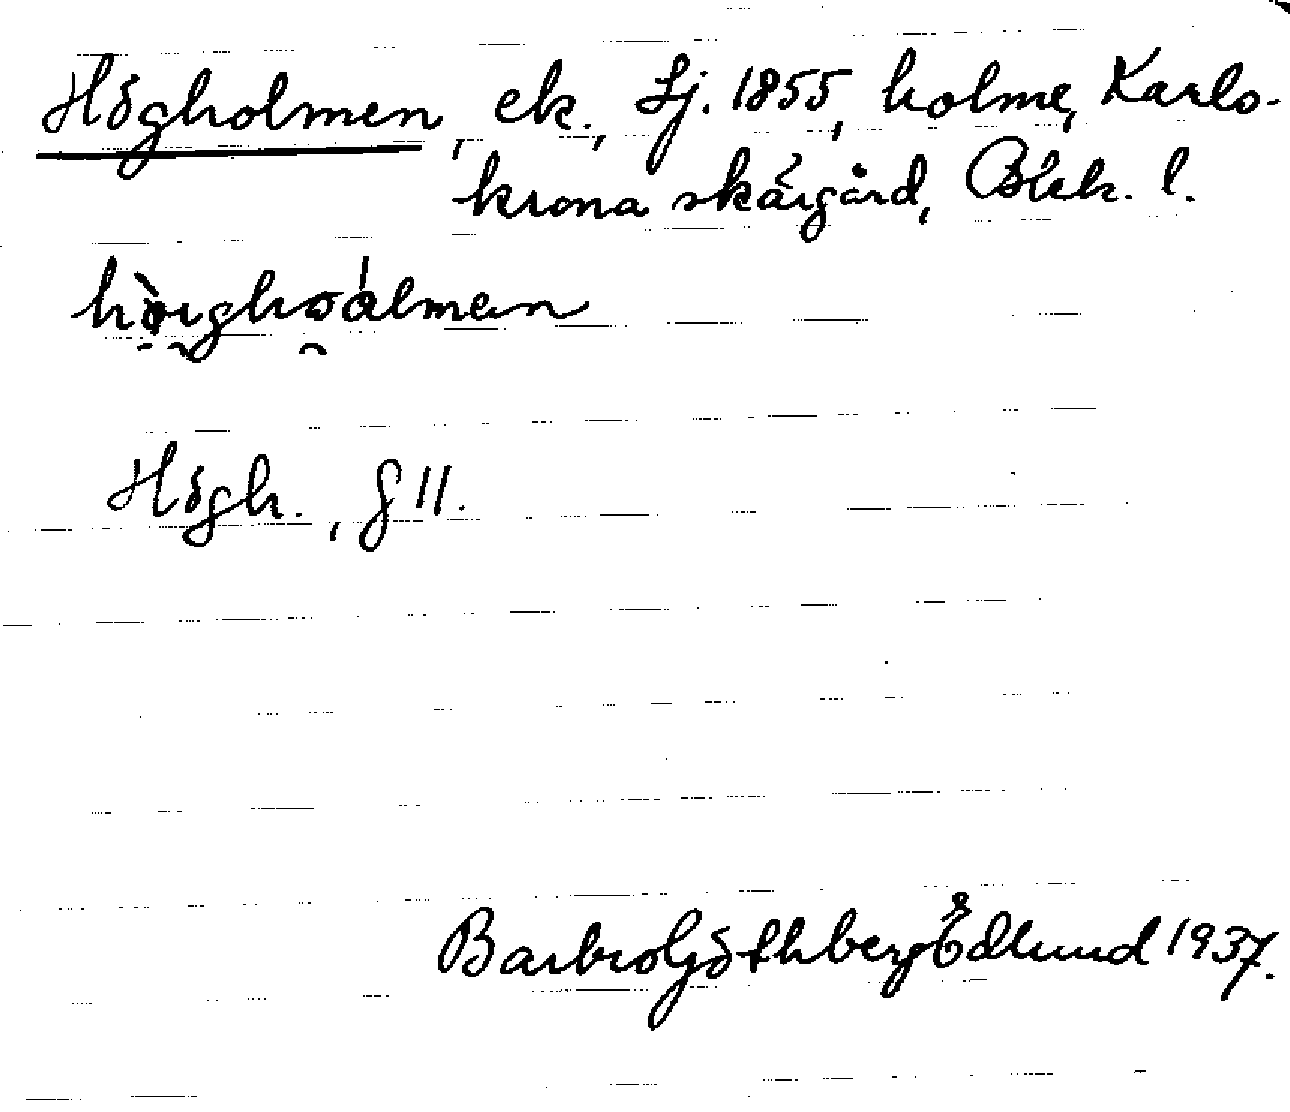 Högholmen, ek., Sj. 1855, holme, Karls-
krona skärgård, Blek. l.
Högh., § 11.
Barbro Göthberg Edlund 1937.